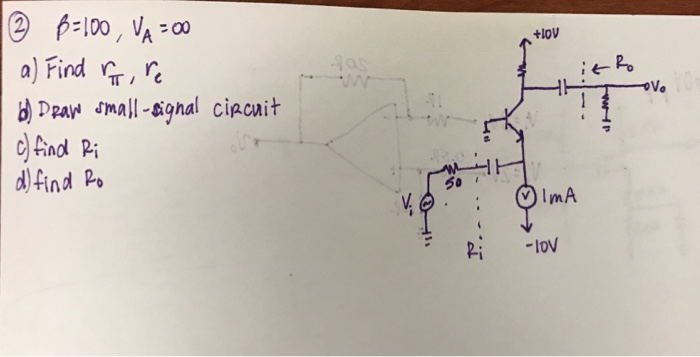 ② β=100, V_A = ∞
a) Find r_π, r_e
b) Draw small-signal circuit
c) find Ri
d) find Ro
+10V
← Ro
Vo
50
Vi
1mA
Ri
-10V